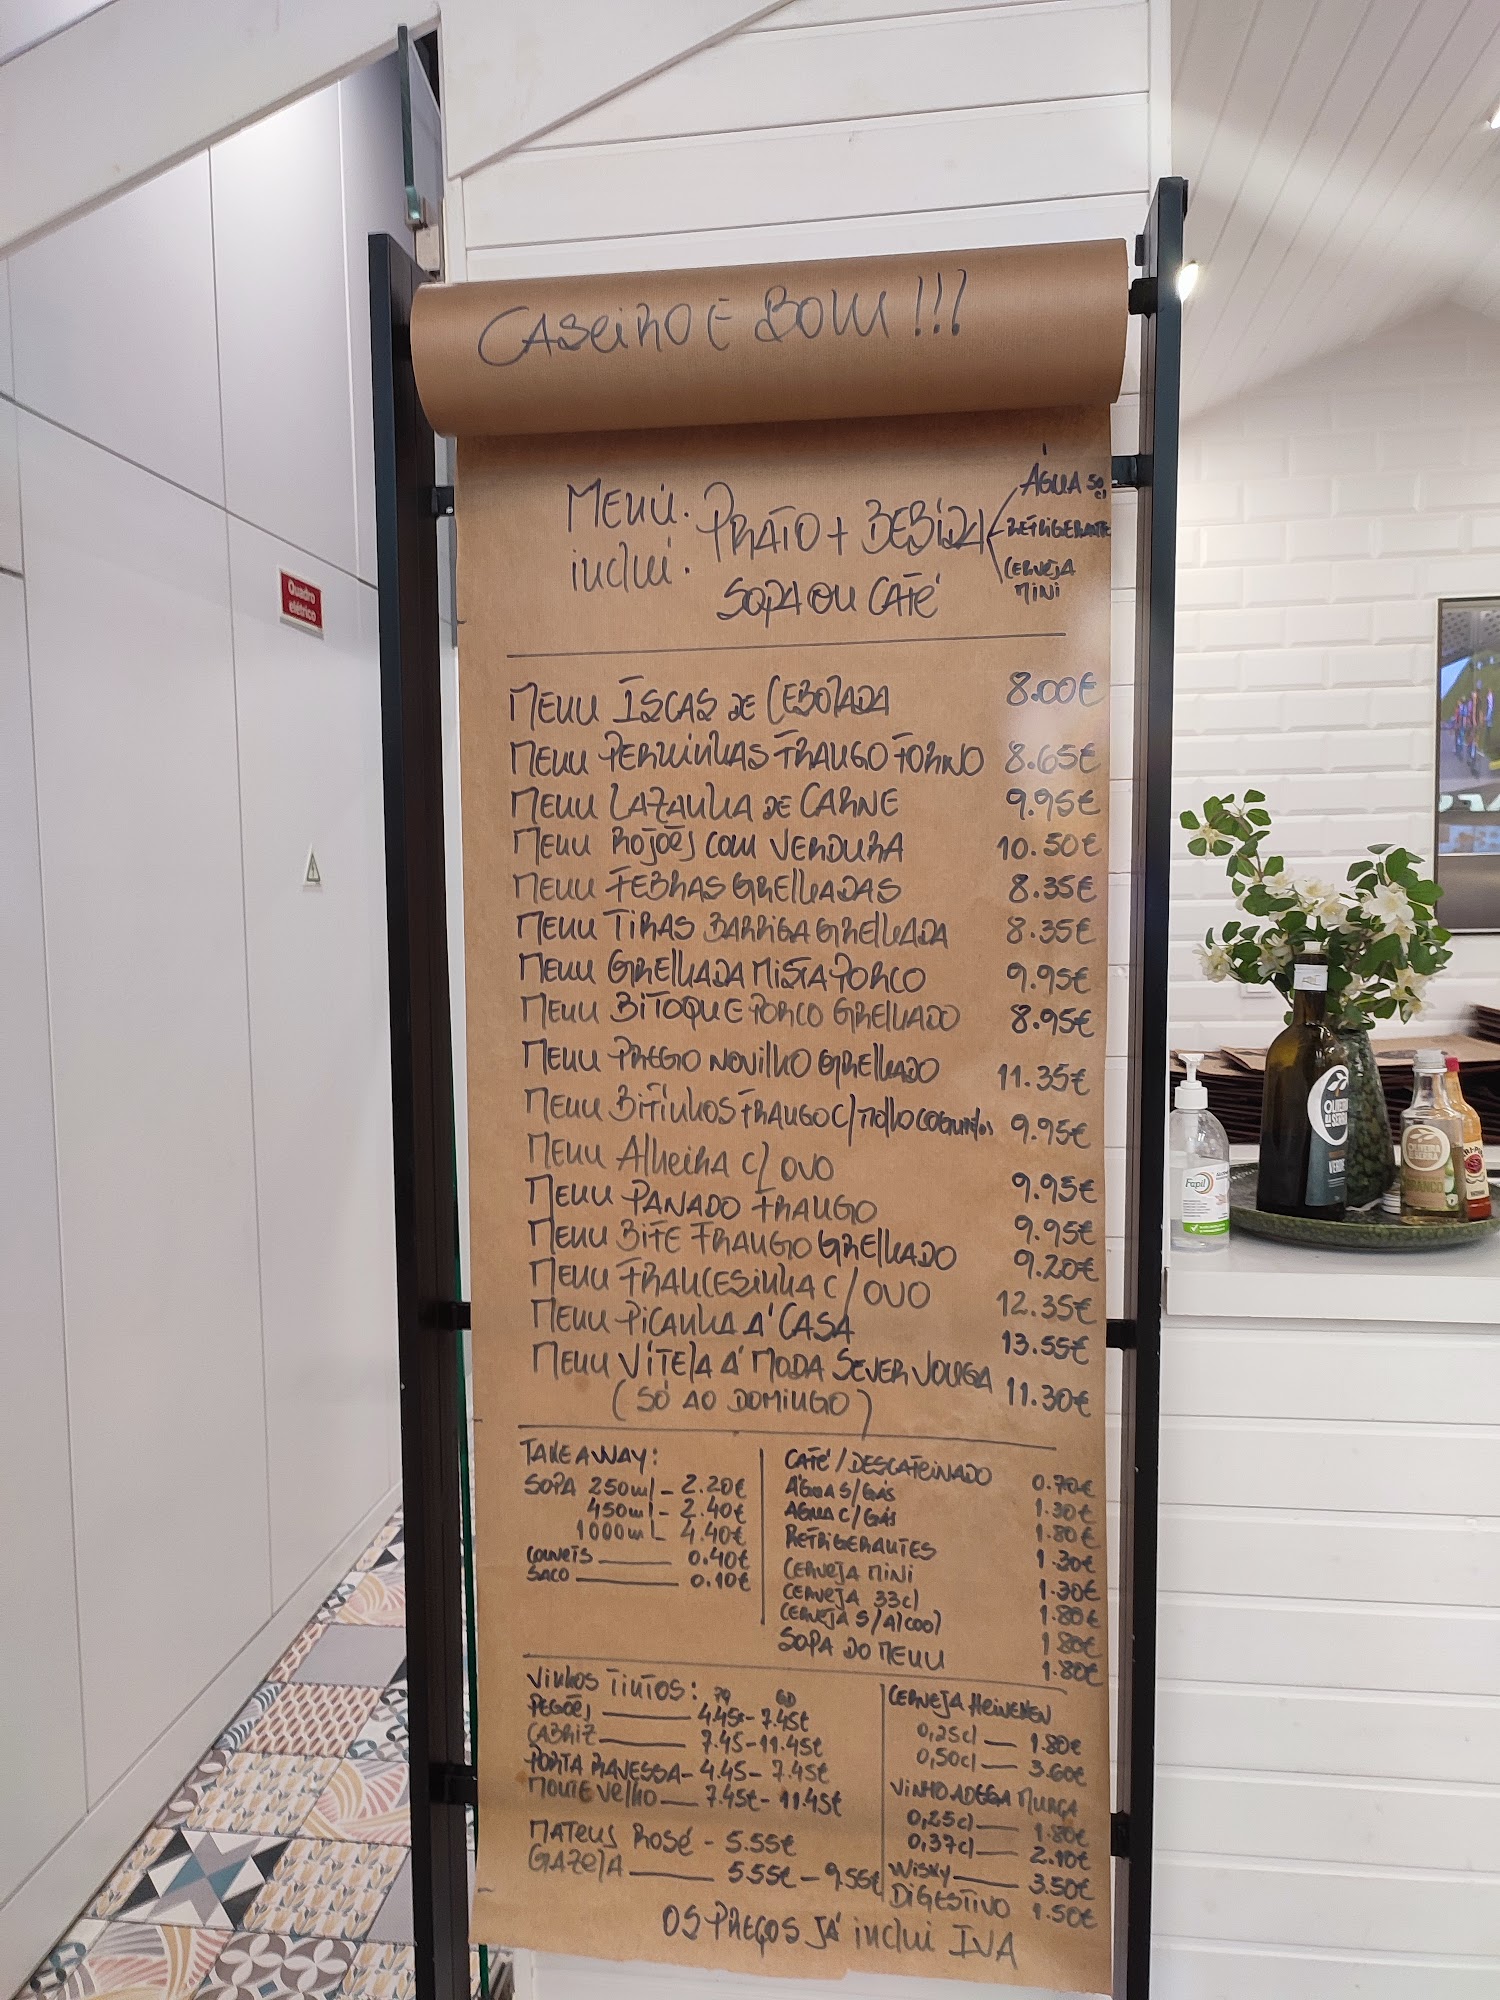 CASEIRO E BOM!!!
Quadro
elétrico
MENU. PRATO + BEBIDA
inclui. SOPA OU CAFÉ
ÁGUA 50 cl
REFRIGERANTE
CERVEJA
MINI
MENU ISCAS DE CEBOLADA 8.00€
MENU PERNINHAS FRANGO FORNO 8.65€
MENU LAZANHA DE CARNE 9.95€
MENU ROJÕES COM VERDURA 10.50€
MENU FEBRAS GRELHADAS 8.35€
MENU TIRAS BARRIGA GRELHADA 8.35€
MENU GRELHADA MISTA PORCO 9.95€
MENU BITOQUE PORCO GRELHADO 8.95€
MENU PREGO NOVILHO GRELHADO 11.35€
MENU BIFINHOS FRANGO C/MOLHO COGUMELOS 9.95€
MENU ALHEIRA C/ OVO 9.95€
MENU PANADO FRANGO 9.95€
MENU BIFE FRANGO GRELHADO 9.20€
MENU FRANCESINHA C/ OVO 12.35€
MENU PICANHA A' CASA 13.55€
MENU VITELA A' MODA SEVER VOUGA 11.30€
(SÓ AO DOMINGO)
TAKE AWAY:
SOPA 250ml - 2.20€
450ml - 2.40€
1000ml 4.40€
COUVETS 0.40€
SACO 0.10€
CAFÉ/DESCAFEINADO 0.70€
ÁGUA S/GÁS 1.30€
AGUA C/GÁS 1.80€
REFRIGERANTES 1.30€
CERVEJA MINI 1.30€
CERVEJA 33cl 1.80€
CERVEJA S/ALCOOL 1.80€
SOPA DO MENU 1.80€
VINHOS TINTOS: PQ GD
PEGÕES 4.45€ - 7.45€
CABRIZ 7.45 - 11.45€
PORTA RAVESSA - 4.45 - 7.45€
MONTE VELHO 7.45€ - 11.45€
MATEUS ROSÉ - 5.55€
GAZELA 5.55€ - 9.55€
CERVEJA HEINENEN
0,25cl 1.80€
0,50cl 3.60€
VINHO ADEGA MURÇA
0,25cl 1.80€
0,37cl 2.10€
WISKY 3.50€
DIGESTIVO 1.50€
OS PREÇOS JÁ inclui IVA
Fapil
OLIVEIRA
DA SERRA
VERDE
OLIVEIRA
DA SERRA
BRANCO